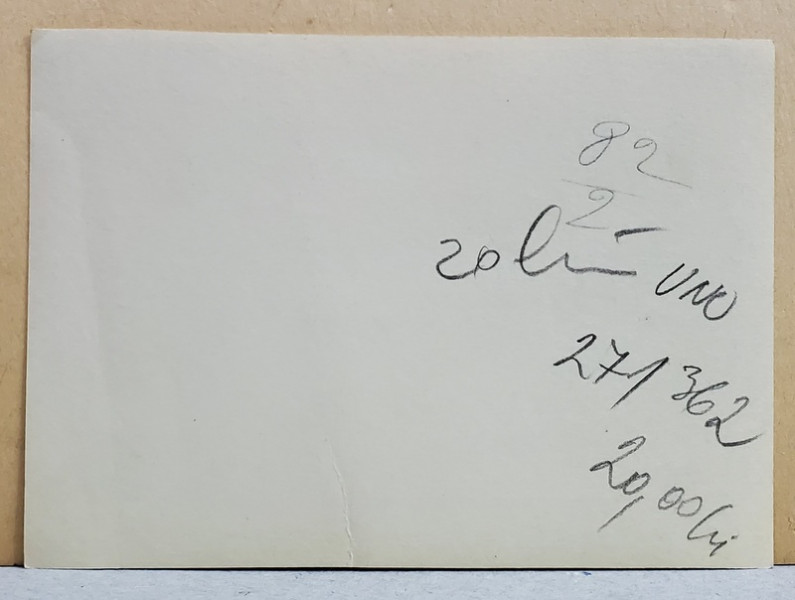 82
2
20 lei UNO
27/362
20,00 lei